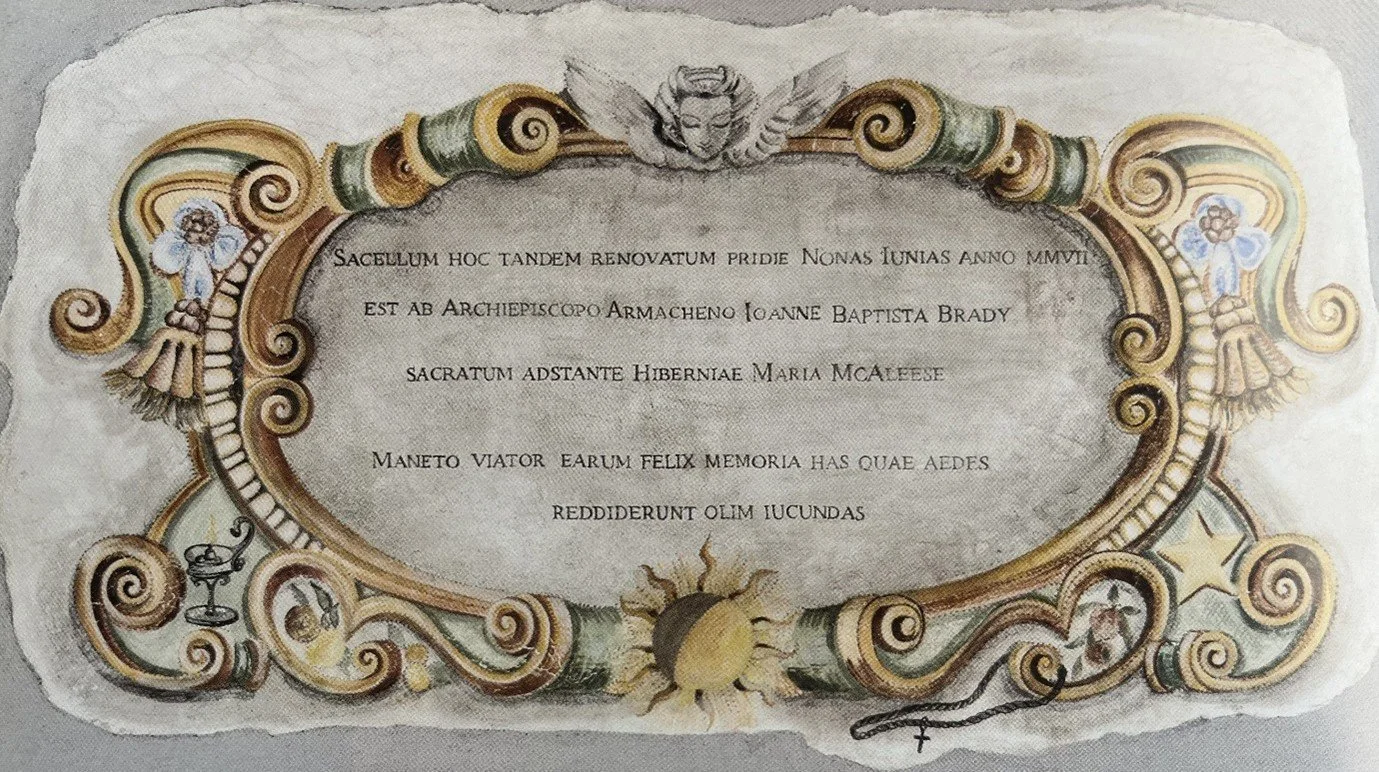 SACELLUM HOC TANDEM RENOVATUM PRIDIE NONAS IUNIAS ANNO MMVII
EST AB ARCHIEPISCOPO ARMACHENO IOANNE BAPTISTA BRADY
SACRATUM ADSTANTE HIBERNIAE MARIA MCALEESE
MANETO VIATOR EARUM FELIX MEMORIA HAS QUAE AEDES
REDDIDERUNT OLIM IUCUNDAS